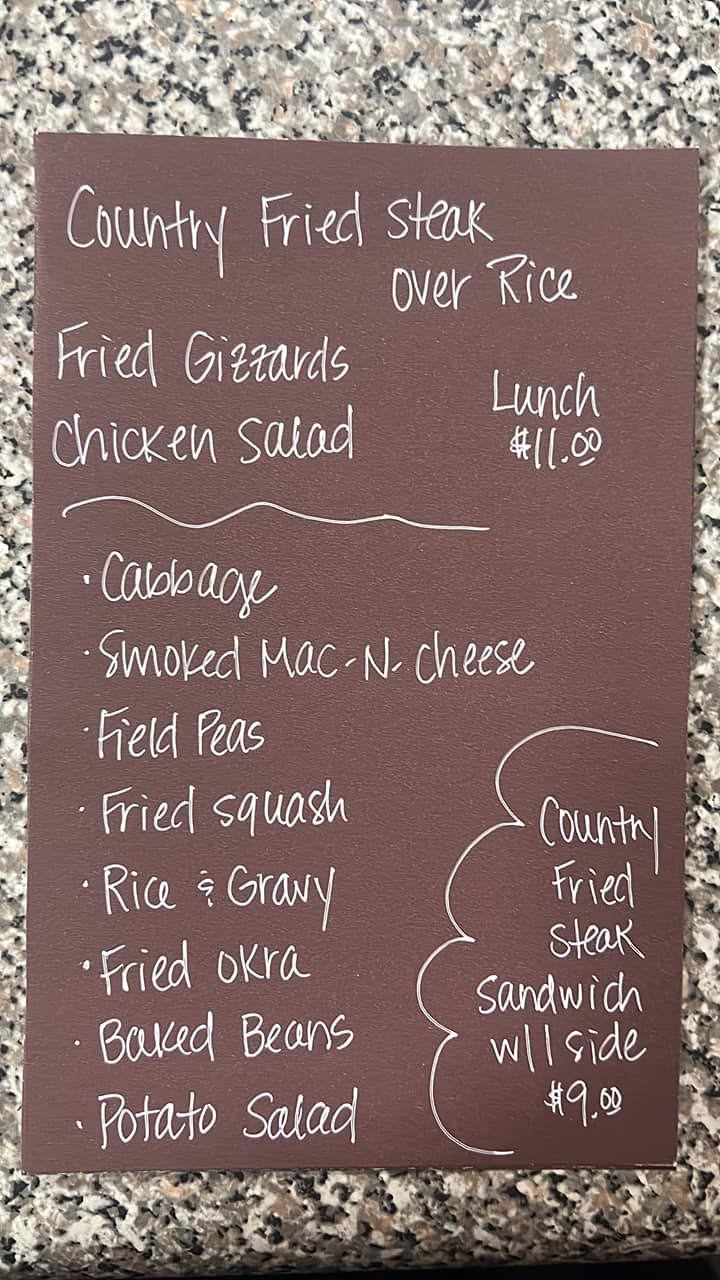 Country Fried Steak
over Rice
Fried Gizzards
Chicken Salad
Lunch
$11.00
• Cabbage
• Smoked Mac-N-Cheese
• Field Peas
• Fried squash
• Rice & Gravy
• Fried okra
• Baked Beans
• Potato Salad
Country
Fried
Steak
Sandwich
w/1 side
$9.00